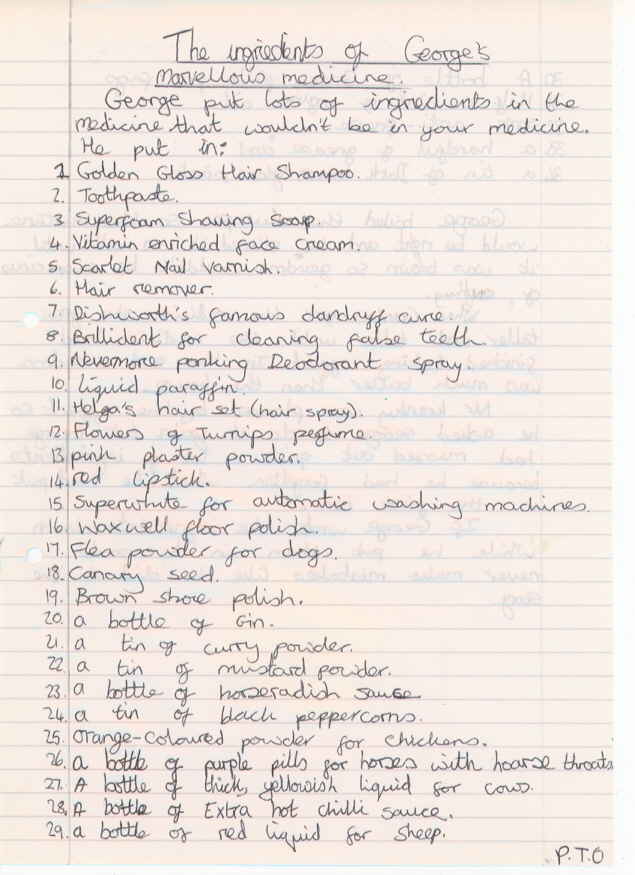 The ingriedents of George's
marvellous medicine.
George put lots of ingriedients in the
medicine that wouldn't be in your medicine.
He put in:
1. Golden Gloss Hair Shampoo.
2. Toothpaste.
3. Superfoam Shaving Soap.
4. Vitamin enriched face cream.
5. Scarlet Nail Varnish.
6. Hair remover.
7. Dishworth's famous dandruff cure.
8. Brillident for cleaning false teeth
9. Nevermore ponking Deodorant spray.
10. Liquid paraffin.
11. Helga's hair set (hair spray).
12. Flowers of Turnips perfume.
13. pink plaster powder.
14. red lipstick.
15. Superwhite for automatic washing machines.
16. Waxwell floor polish.
17. Flea powder for dogs.
18. Canary seed.
19. Brown shoe polish.
20. a bottle of Gin.
21. a tin of curry powder.
22. a tin of mustard powder.
23. a bottle of horseradish sauce
24. a tin of black peppercorns.
25. Orange-Coloured powder for chickens.
26. a bottle of purple pills for horses with hoarse throats
27. A bottle of thick, yellowish liquid for cows.
28. A bottle of Extra hot chilli sauce.
29. a bottle of red liquid for sheep.
P.T.O